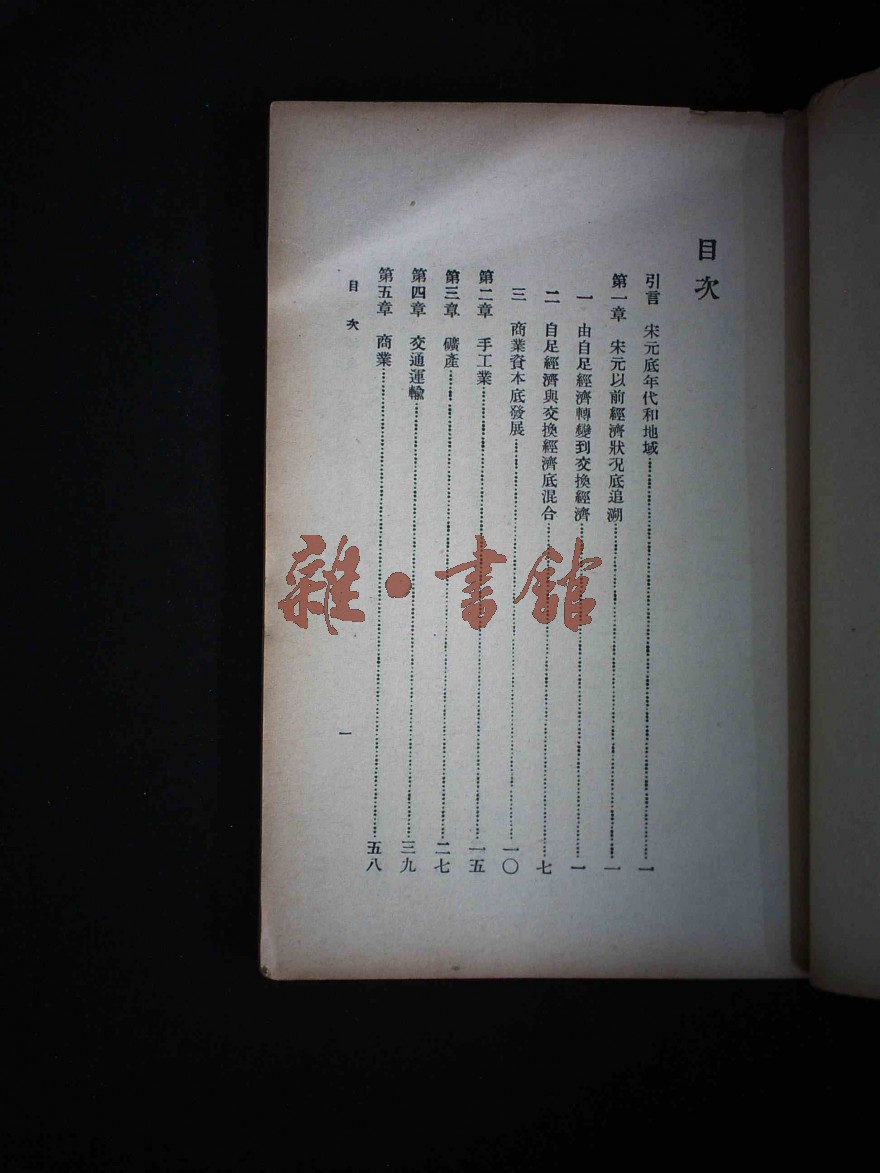 目次
引言　宋元底年代和地域……一
第一章　宋元以前經濟狀況底追溯……一
一　由自足經濟轉變到交換經濟……一
二　自足經濟與交換經濟底混合……七
三　商業資本底發展……一〇
第二章　手工業……一五
第三章　礦產……二七
第四章　交通運輸……三九
第五章　商業……五八
目次
一
雜·書館